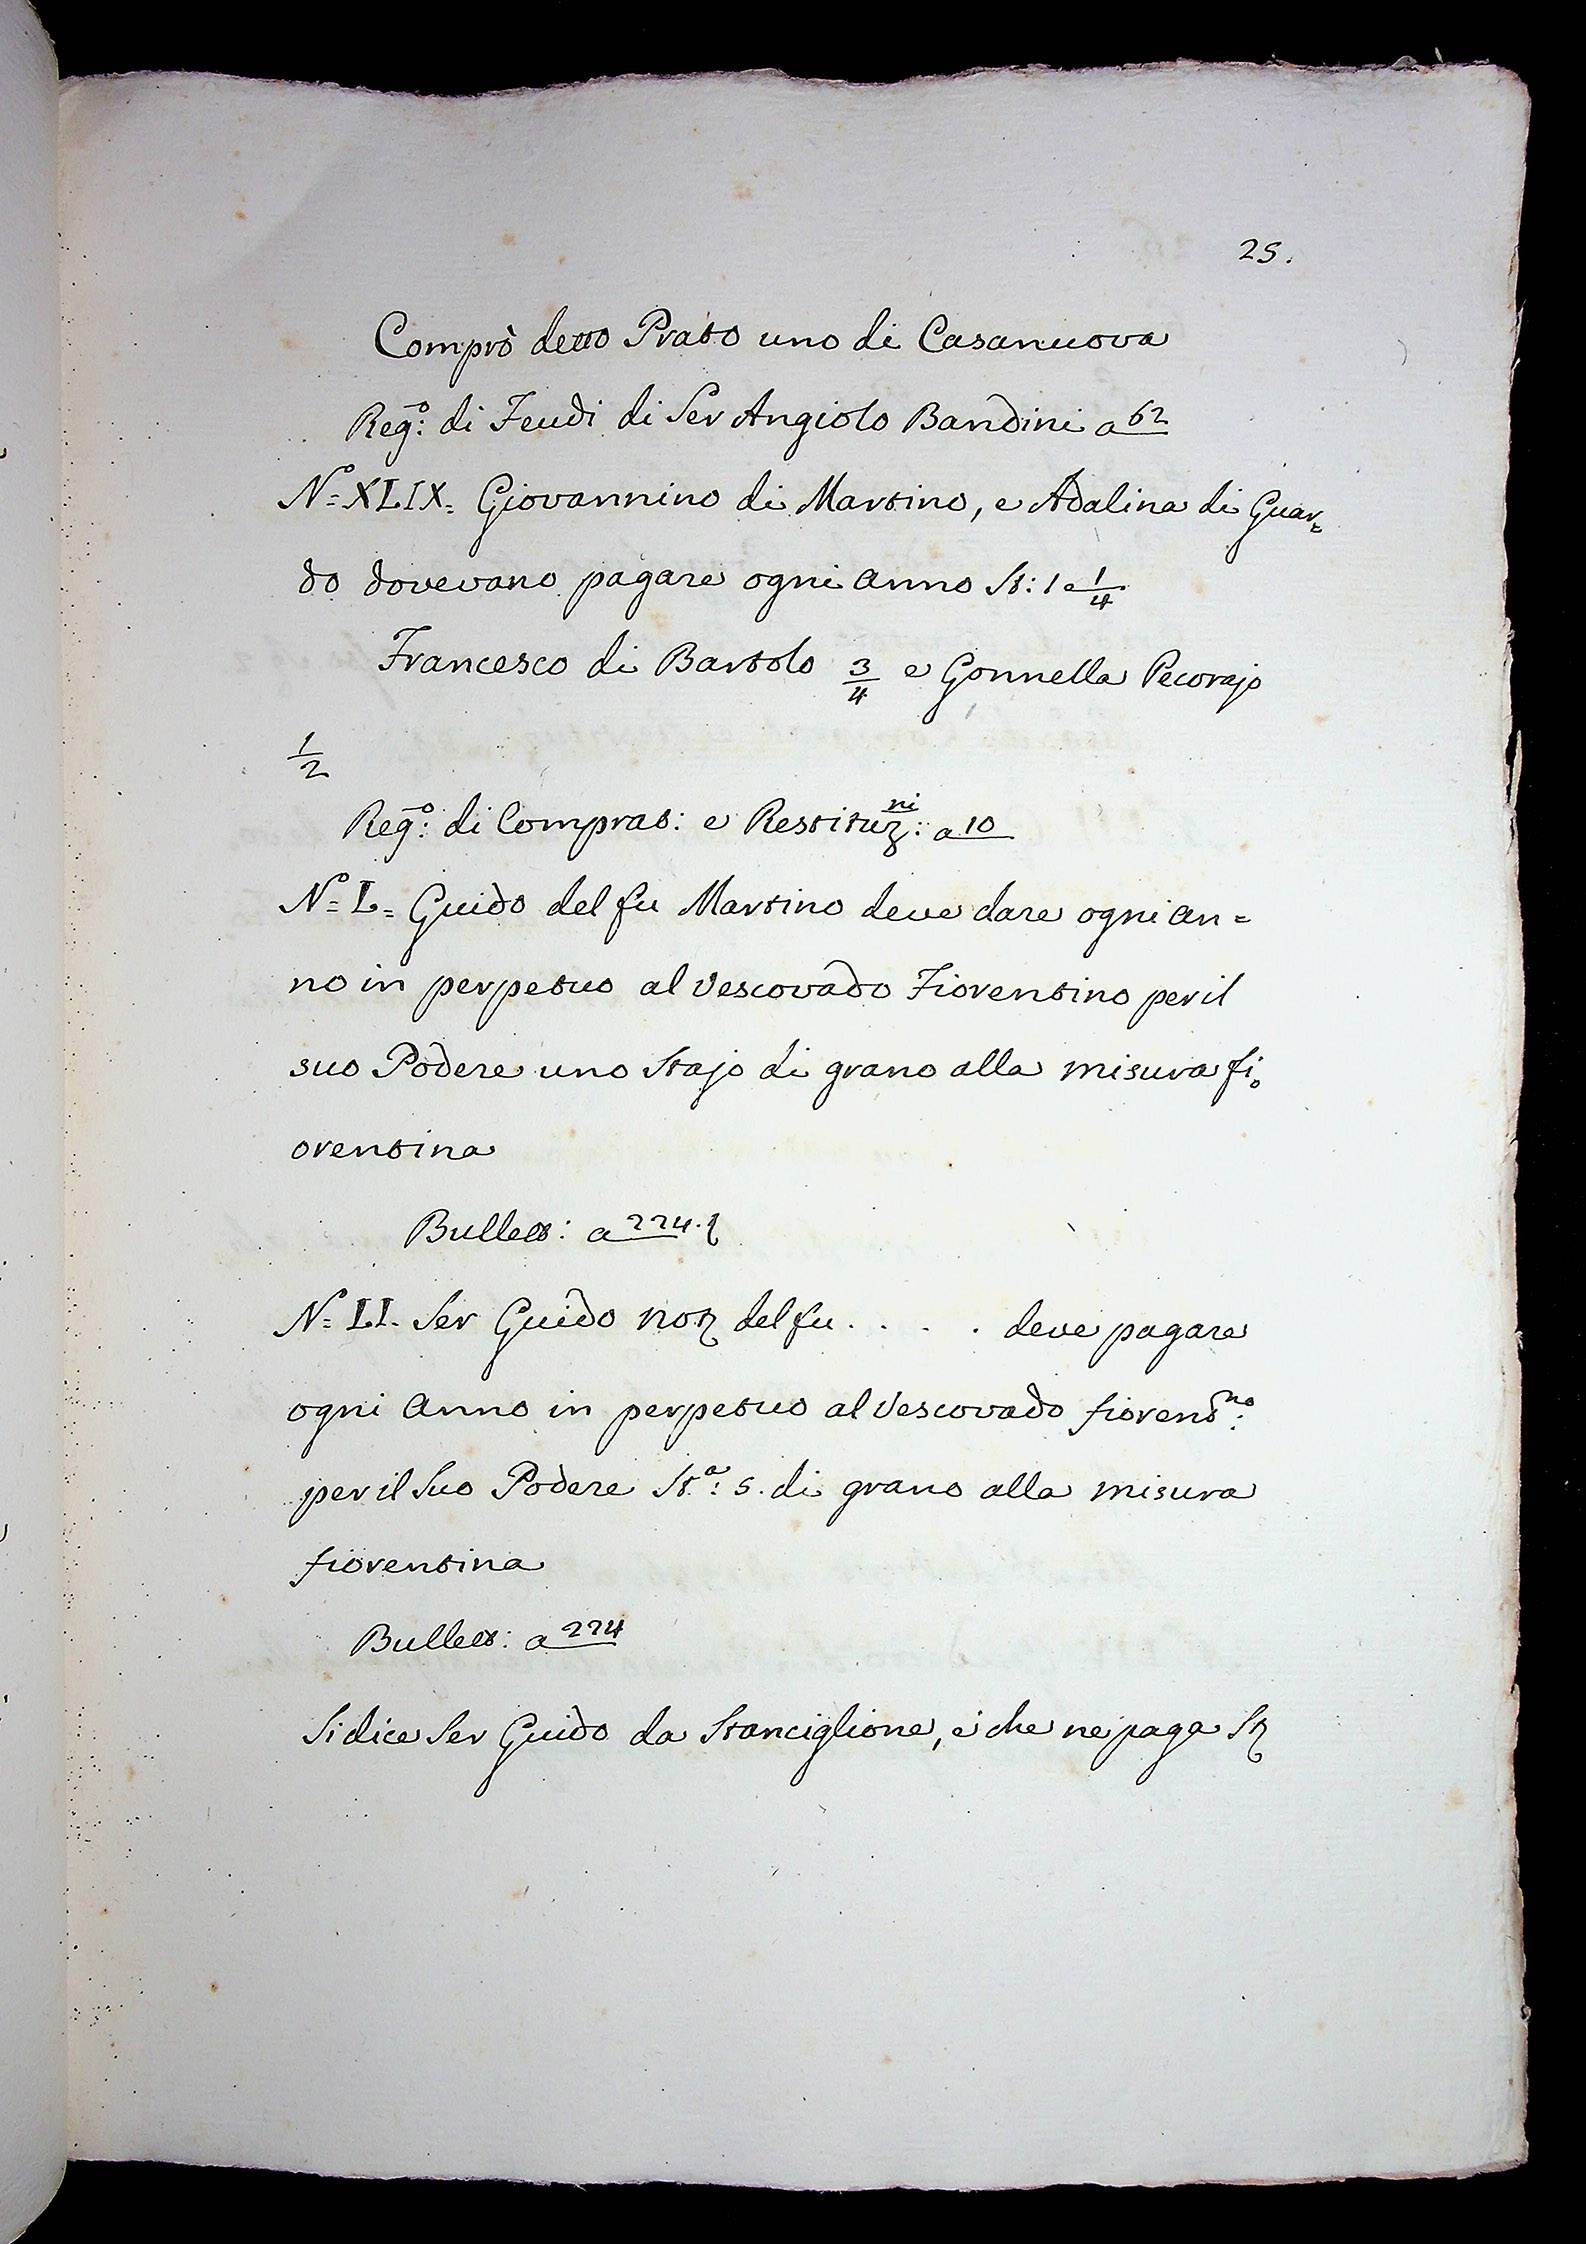 25.
Comprò detto Prato uno di Casanuova
Reg.º: di Feudi di Ser Angiolo Bandini a 62
Nº= XLIX= Giovannino di Martino, e Adalina di Guar=
do dovevano pagare ogni anno St: 1 e 1/4
Francesco di Bartolo 3/4 e Gonnella Pecorajo
1/2
Reg.º: di Comprat: e Restituz:ni a 10
Nº= L= Guido del fu Martino deve dare ogni an=
no in perpetuo al Vescovado Fiorentino per il
suo Podere uno Stajo di grano alla misura fi=
orentina
Bullett: a 224.
N= LI. Ser Guido Not del fu . . . . deve pagare
ogni Anno in perpetuo al Vescovado fiorent:no
per il Suo Podere St.a: 5. di grano alla misura
fiorentina
Bullett: a 224
Si dice Ser Guido da Stanciglione, e che ne paga St